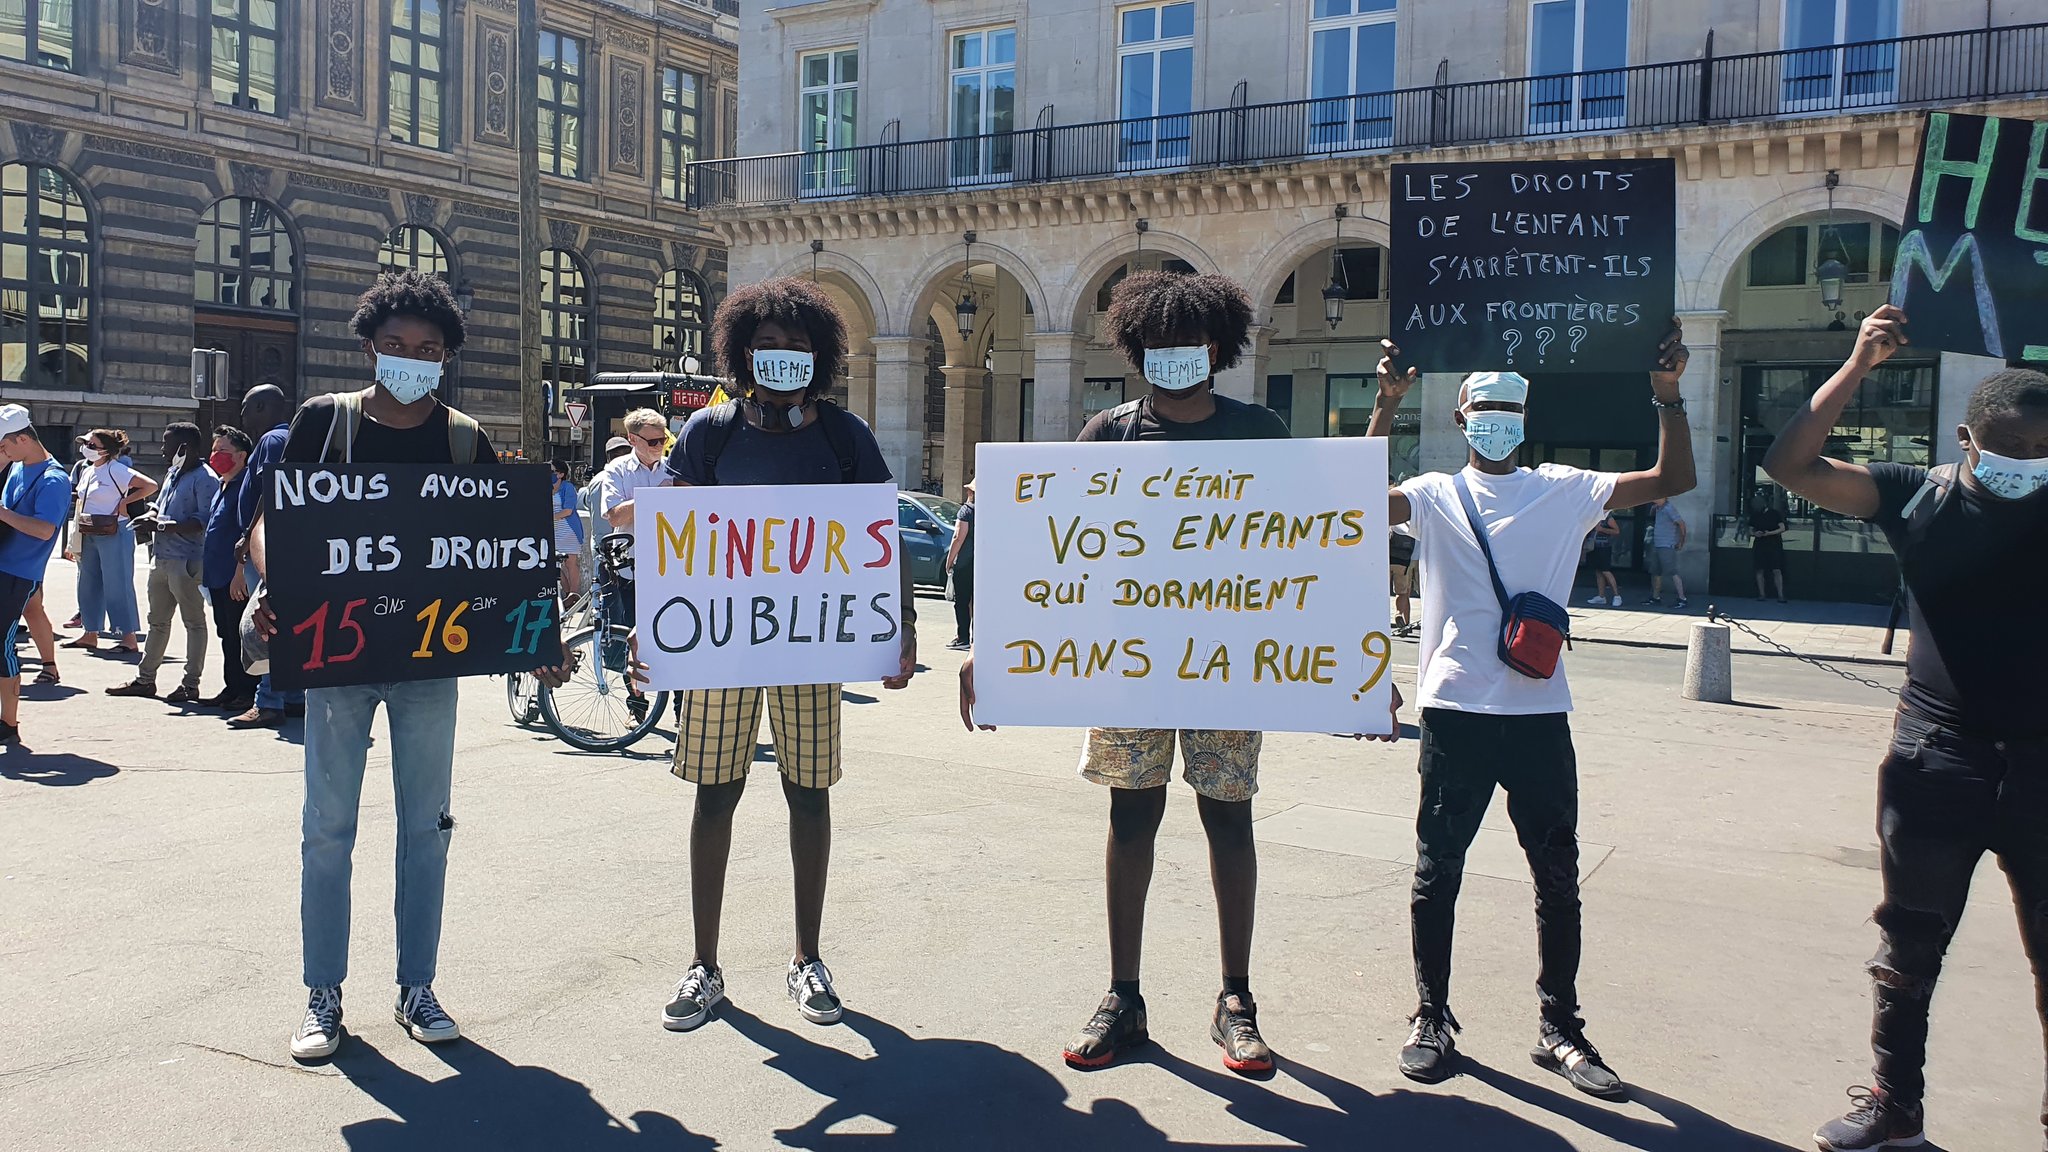 NOUS AVONS
DES DROITS!
15 ans 16 ans 17 ans
MiNEURS
OUBLiES
ET Si C'ÉTAIT
VOS ENFANTS
Qui DORMAiENT
DANS LA RUE ?
LES DROITS
DE L'ENFANT
S'ARRÊTENT-ILS
AUX FRONTIÈRES
???
HE
M
METRO
HELP MIE
HELP MIE
HELP MIE